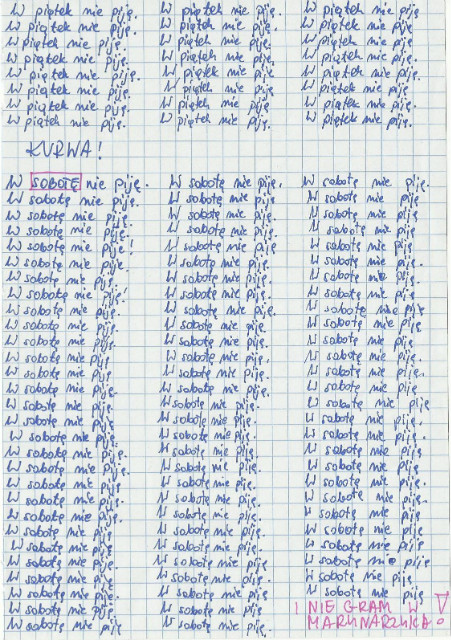 W piątek nie piję. W piątek nie piję. W piątek nie piję.
W piątek nie piję. W piątek nie piję. W piątek nie piję.
W piątek nie piję. W piątek nie piję. W piątek nie piję.
W piątek nie piję. W piątek nie piję. W piątek nie piję.
W piątek nie piję. W piątek nie piję W piątek nie piję.
W piątek nie piję. W piątek nie piję W piątek nie piję.
W piątek nie piję. W piątek nie piję. W piątek nie piję.
W piątek nie piję. W piątek nie piję. W piątek nie piję.
KURWA!
W sobotę nie piję. W sobotę nie piję. W sobotę nie piję.
W sobotę nie piję. W sobotę nie piję. W sobotę nie piję
W sobotę nie piję. W sobotę nie piję. W sobotę nie piję.
W sobotę nie piję. W sobotę nie piję. W sobotę nie piję
W sobotę nie piję! W sobotę nie piję W sobotę nie piję.
W sobotę nie piję. W sobotę nie piję. W sobotę nie piję.
W sobotę nie piję. W sobotę nie piję. W sobotę nie piję.
W sobotę nie piję. W sobotę nie piję. W sobotę nie piję.
W sobotę nie piję. W sobotę nie piję. W sobotę nie piję
W sobotę nie piję. W sobotę nie piję. W sobotę nie piję.
W sobotę nie piję. W sobotę nie piję. W sobotę nie piję.
W sobotę nie piję W sobotę nie piję. W sobotę nie piję.
W sobotę nie piję. W sobotę nie piję. W sobotę nie piję.
W sobotę nie piję. W sobotę nie piję. W sobotę nie piję
W sobotę nie piję. W sobotę nie piję. W sobotę nie piję
W sobotę nie piję. W sobotę nie piję. W sobotę nie piję.
W sobotę nie piję. W sobotę nie piję. W sobotę nie piję.
W sobotę nie piję. W sobotę nie piję. W sobotę nie piję
W sobotę nie piję. W sobotę nie piję W sobotę nie piję.
W sobotę nie piję. W sobotę nie piję. W sobotę nie piję.
W sobotę nie piję. W sobotę nie piję. W sobotę nie piję.
W sobotę nie piję. W sobotę nie piję. W sobotę nie piję.
W sobotę nie piję. W sobotę nie piję. W sobotę nie piję
W sobotę nie piję W sobotę nie piję. W sobotę nie piję
W sobotę nie piję. W sobotę nie piję. W sobotę nie piję
W sobotę nie piję. W sobotę nie piję. W sobotę nie piję
W sobotę nie piję. W sobotę nie piję. W sobotę nie piję.
W sobotę nie piję. W sobotę nie piję. I NIE GRAM W
W sobotę nie piję. W sobotę nie piję. MARYNARZYKA!